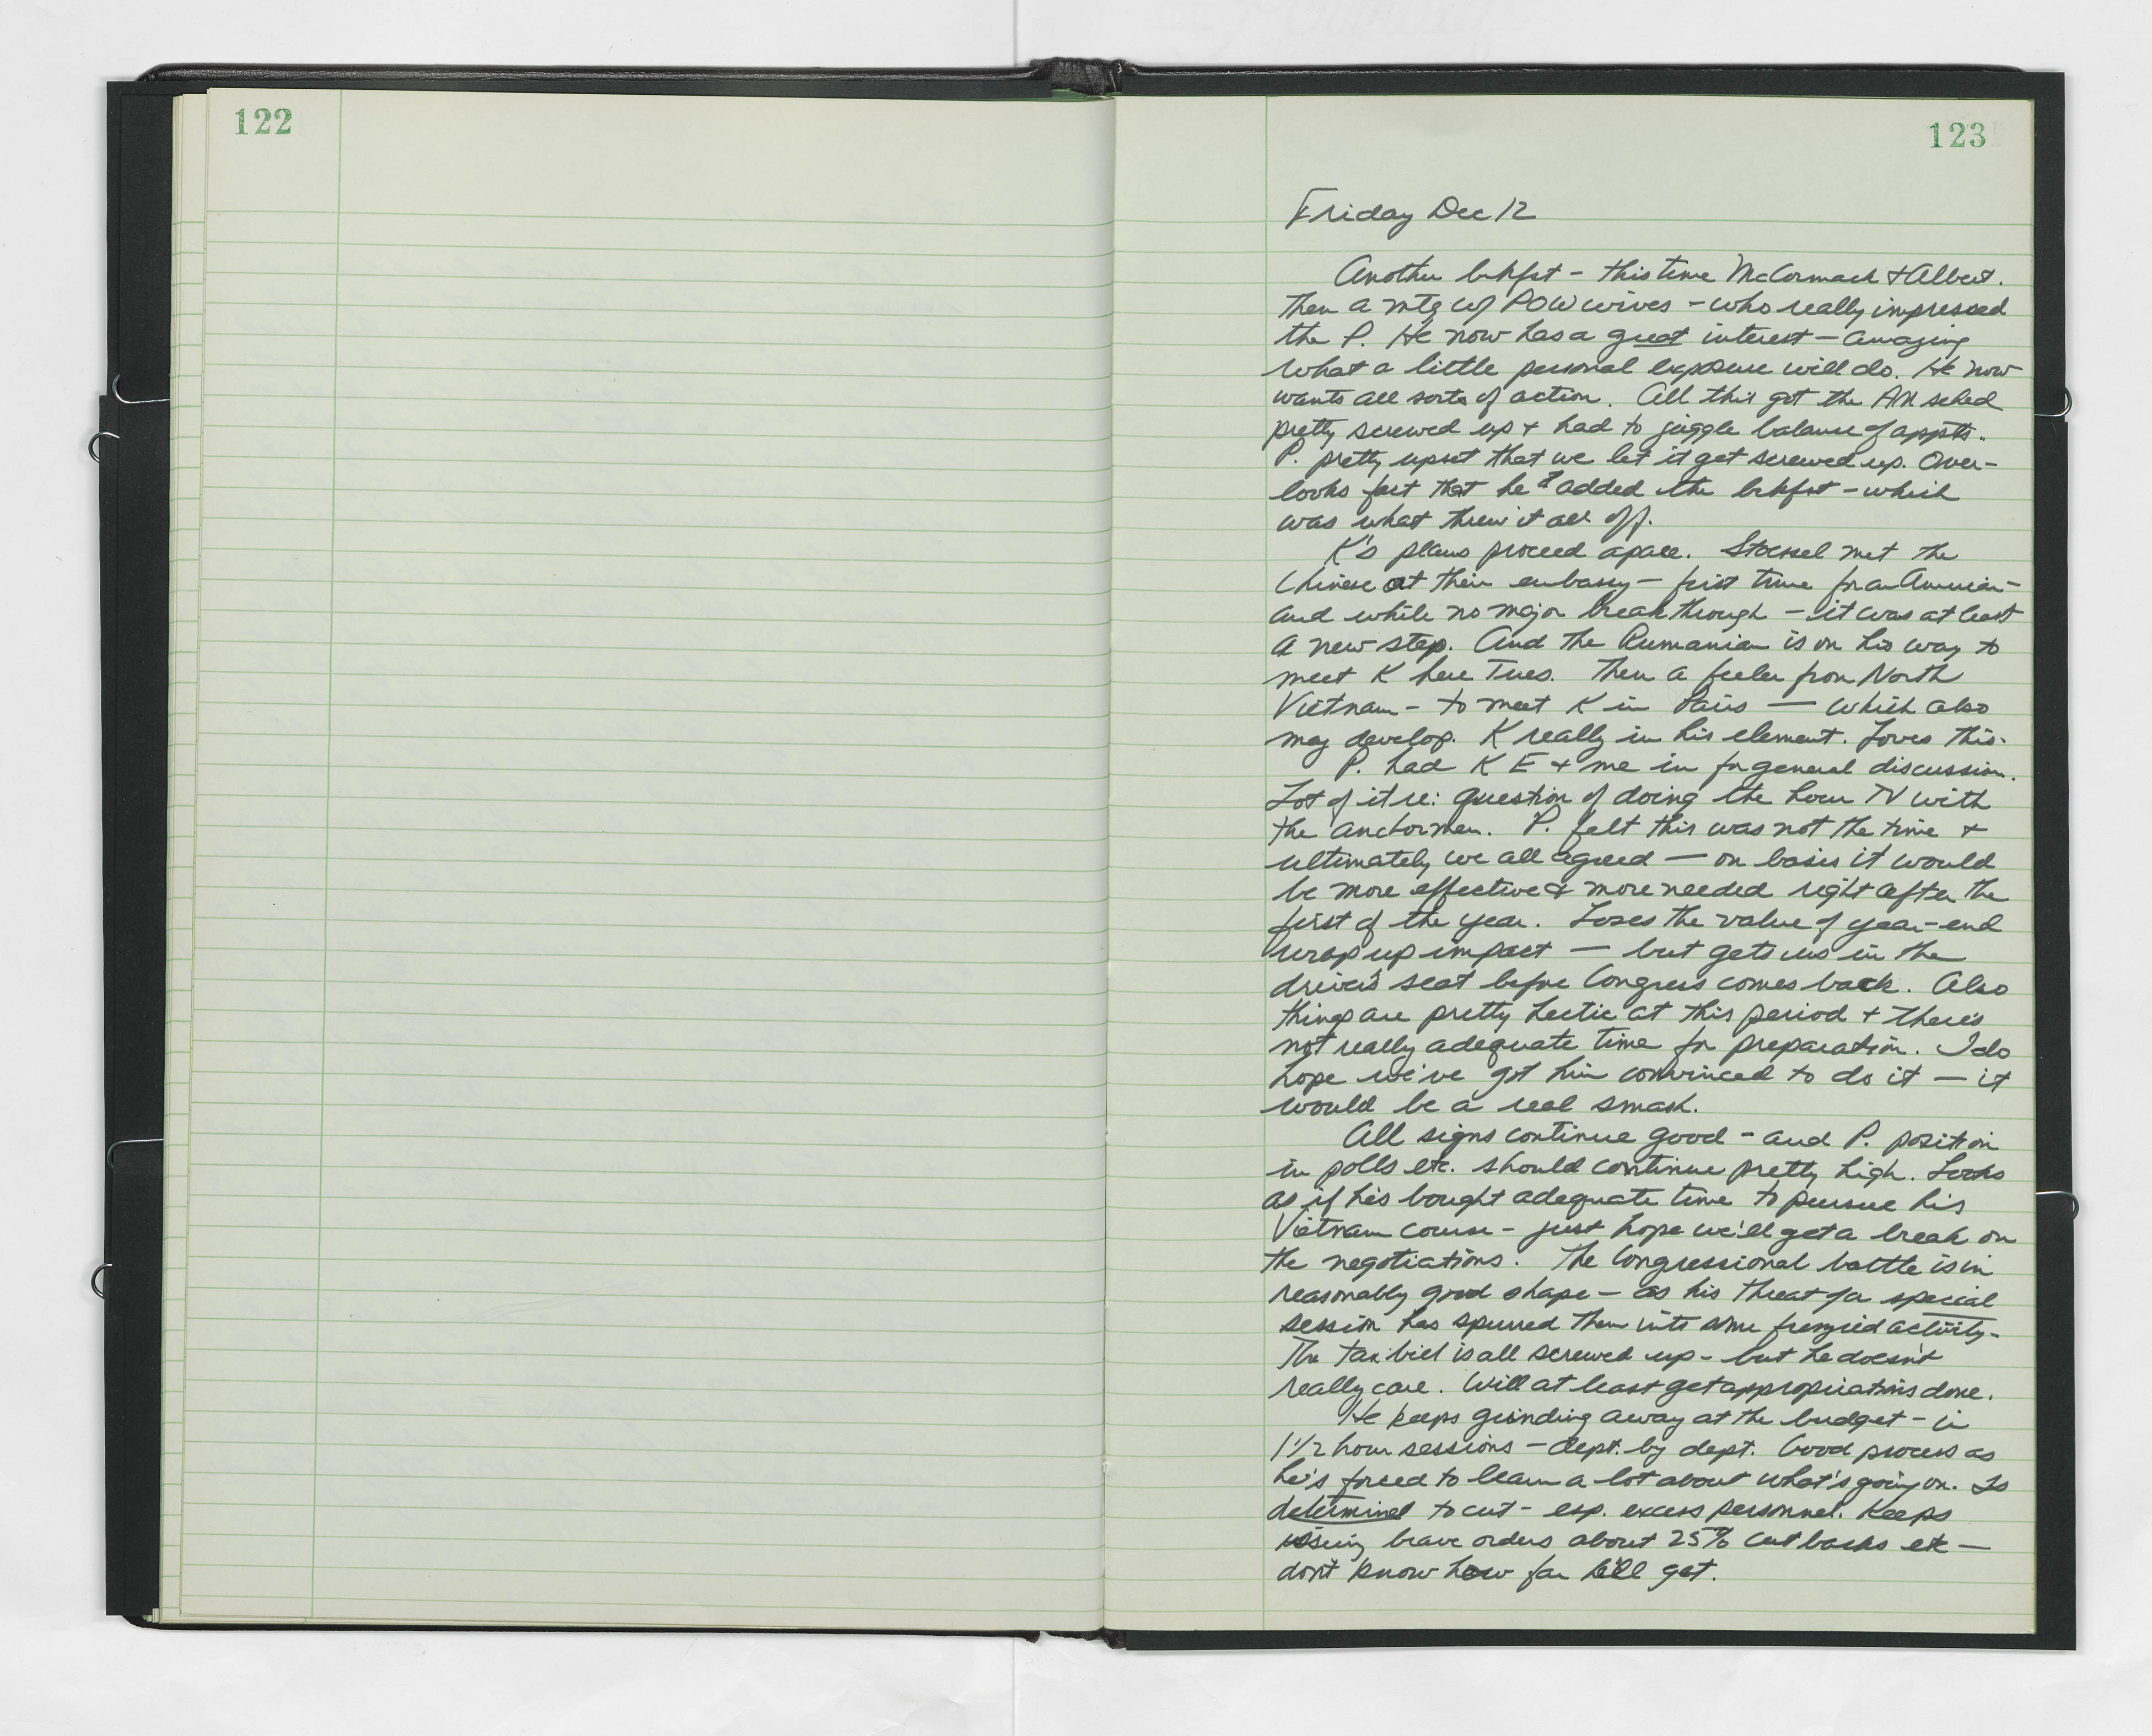 122
123
Friday Dec 12
Another bkfst - this time McCormack & Albert.
Then a mtg w/ POW wives - who really impressed
the P. He now has a great interest - amazing
what a little personal exposure will do. He now
wants all sorts of action. All this got the AM sched
pretty screwed up & had to juggle balance of appts.
P. pretty upset that we let it get screwed up. Over-
looks fact that he added the bkfst - which
was what threw it all off.
K's plans proceed apace. Stoessel met the
Chinese at their embassy - first time for an American -
and while no major breakthrough - it was at least
a new step. And the Rumanian is on his way to
meet K here Tues. Then a feeler from North
Vietnam - to meet K in Paris - which also
may develop. K really in his element. Loves this.
P. had K E & me in for general discussion.
Lot of it re: question of doing the hour TV with
the anchormen. P. felt this was not the time &
ultimately we all agreed - on basis it would
be more effective & more needed right after the
first of the year. Loses the value of year-end
wrap up impact - but gets us in the
driver's seat before Congress comes back. Also
things are pretty hectic at this period & there's
not really adequate time for preparation. I do
hope we've got him convinced to do it - it
would be a real smash.
All signs continue good - and P. position
in polls etc. should continue pretty high. Looks
as if he's bought adequate time to pursue his
Vietnam course - just hope we'll get a break on
the negotiations. The Congressional battle is in
reasonably good shape - as his threat for special
session has spurred them into some frenzied activity.
The tax bill is all screwed up - but he doesn't
really care. Will at least get appropriations done.
He keeps grinding away at the budget - in
1 1/2 hour sessions - dept. by dept. Good process as
he's forced to learn a lot about what's going on. Is
determined to cut - esp. excess personnel. Keeps
issuing brave orders about 25% cut backs etc -
don't know how far he'll get.